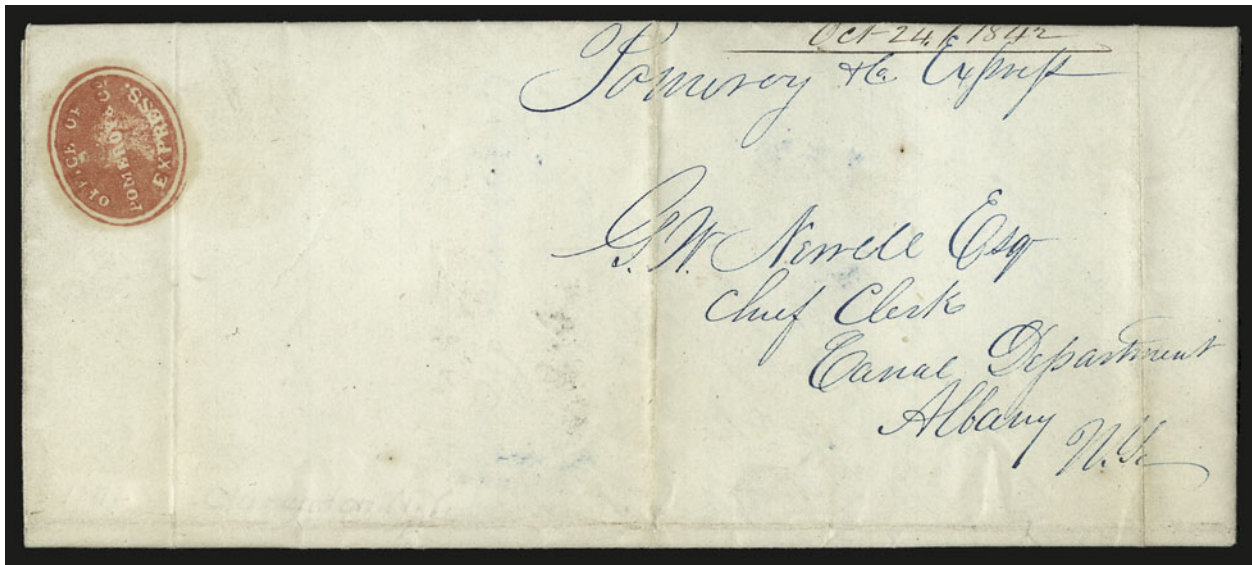 Oct 24, 1842
Pomeroy & Co. Express
OFFICE OF
POMEROY & Co's
EXPRESS.
G. W. Newell Esq
Chief Clerk
Canal Department
Albany
N.Y.